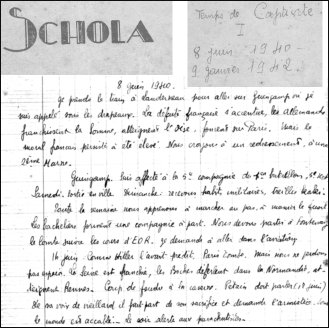 SCHOLA
Temps de Captivité
I
8 juin 1940 -
9 janvier 1942.
8 juin 1940.
Je prends le train à Landerneau pour aller sur Guingamp où je
suis appelé sous les drapeaux. La défaite française s'accentue, les allemands
franchissent la Somme, atteignent l'Oise, foncent sur Paris. Mais le
moral français persiste à être élevé. Nous croyons à un redressement, à une
2ème Marne.
Guingamp. Suis affecté à la 5e compagnie de
Samedi, sortie en ville. Dimanche: recevons habits militaires, vieilles
Toute la semaine nous apprenons à marcher au pas, à manier le fusil
les bacheliers forment une compagnie à part. Nous devons partir à Fontenay
le Comte suivre les cours d'EOR. Je demande à aller dans l'aviation
14 juin. Comme Hitler l'avait prédit, Paris tombe. Mais nous ne perdons
pas espoir. La Seine est franchie, les Boches déferlent dans la Normandie, at-
teignent Rennes. Coup de foudre à la caserne. Pétain doit parler (18 juin)
De sa voix de vieillard il fait part de son sacrifice et demande l'armistice.
monde est accablé. Le soir alerte aux parachutistes.